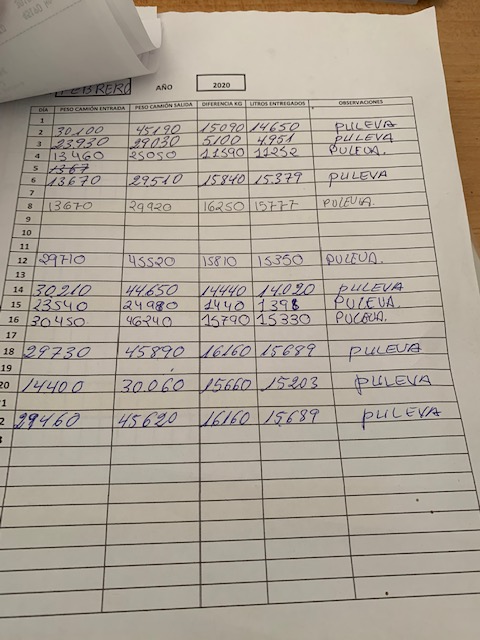 FEBRERO AÑO 2020
DÍA PESO CAMIÓN ENTRADA PESO CAMIÓN SALIDA DIFERENCIA KG LITROS ENTREGADOS OBSERVACIONES
1
2 30100 45190 15090 14650 PULEVA
3 23930 29030 5100 4951 PULEVA
4 13460 25050 11590 11252 PULEVA.
5 1367
6 13670 29510 15840 15379 PULEVA
7
8 13670 29920 16250 15777 PULEVA.
9
10
11
12 29710 45520 15810 15350 PULEVA.
13
14 30210 44650 14440 14020 PULEVA
15 23540 24980 1440 1398 PULEVA.
16 30450 46240 15790 15330 PULEVA.
17
18 29730 45890 16160 15689 PULEVA
19
20 14400 30.060 15660 15203 PULEVA
1
2 29460 45620 16160 15689 PULEVA